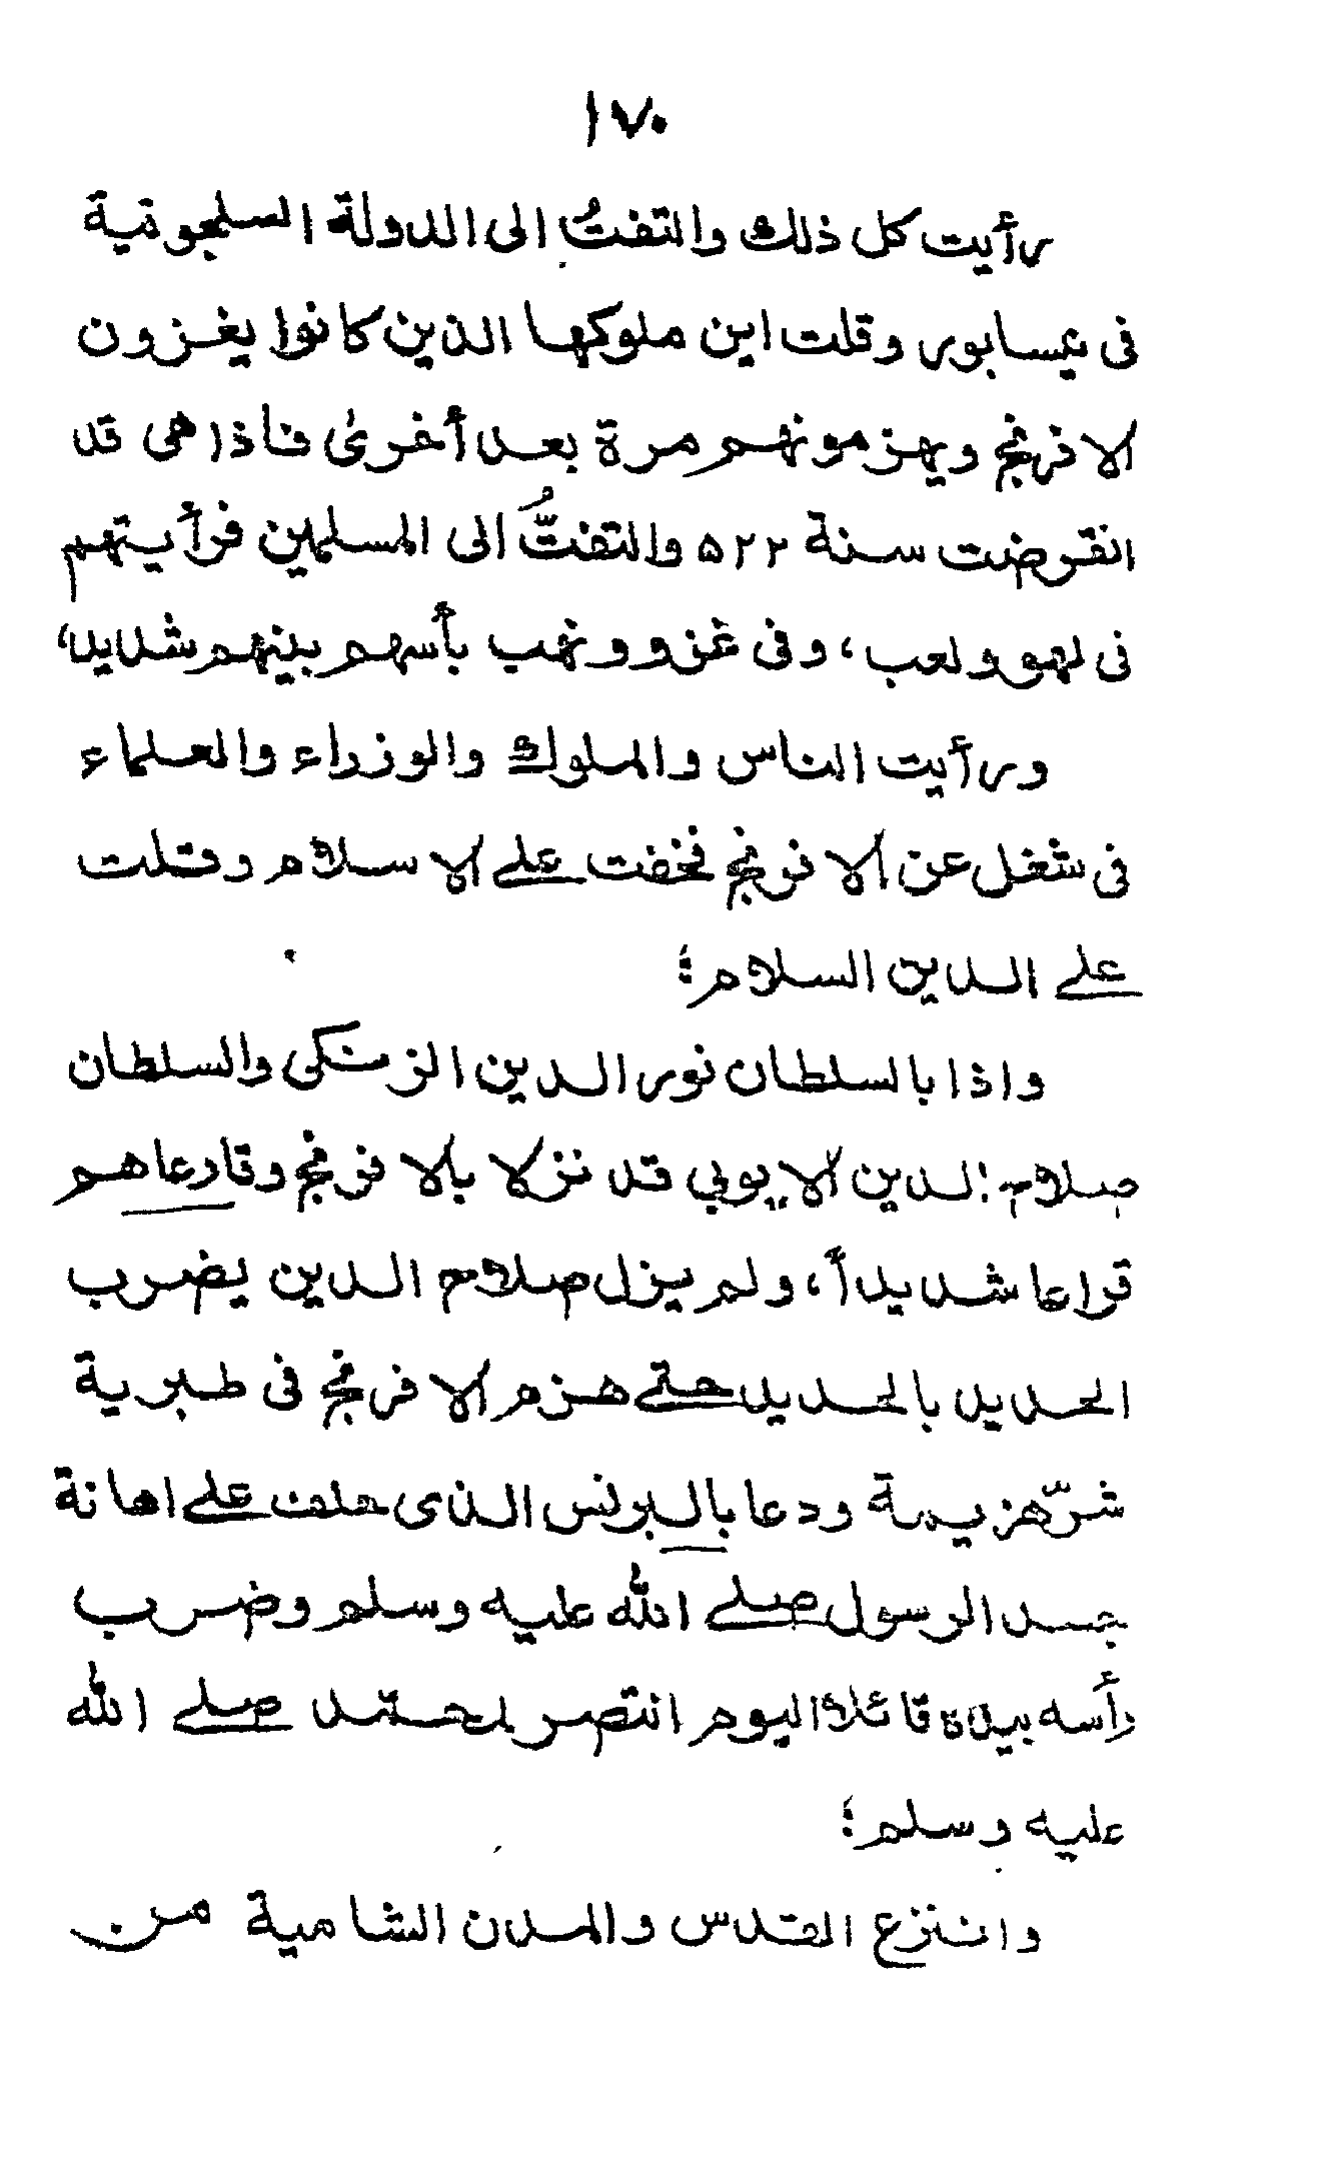 ١٧٠
رأيت كل ذلك والتفتُ الى الدولة السلجوقية
فى نيسابور وقلت اين ملوكها الذين كانوا يغزون
الافرنج ويهزمونهم مرة بعد أخرىٰ فاذا هى قد
انقرضت سنة ٥٢٢ والتفتُّ الى المسلمين فرأيتهم
فى لهو ولعب، وفى غزو ونهب بأسهم بينهم شديد،
ورأيت الناس والملوك والوزراء والعلماء
فى شغل عن الافرنج فخفت على الاسلام وقلت
على الدين السلام؛
واذا بالسلطان نور الدين الزنكى والسلطان
صلاح الدين الايوبي قد نزلا بالافرنج وقارعاهم
قراعا شديداً، ولم يزل صلاح الدين يضرب
الحديد بالحديد حتى هزم الافرنج فى طبرية
شرّ هزيمة ودعا بالبرنس الذى حلف على اهانة
جسد الرسول صلى الله عليه وسلم وضرب
رأسه بيده قائلا اليوم انتصر لمحمد صلى الله
عليه وسلم؛
وانتزع القدس والمدن الشامية من